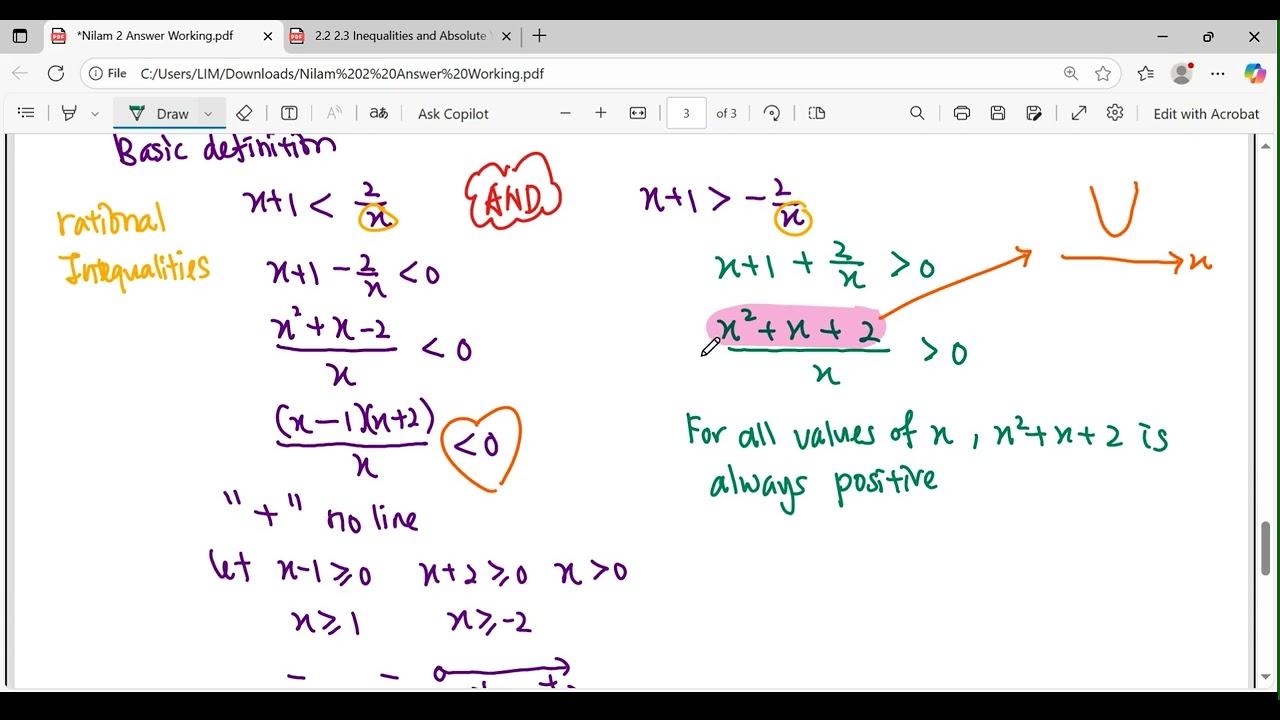 *Nilam 2 Answer Working.pdf
2.2 2.3 Inequalities and Absolute
File C:/Users/LIM/Downloads/Nilam%202%20Answer%20Working.pdf
Draw aあ Ask Copilot 3 of 3 Edit with Acrobat
Basic definition
rational
Inequalities
x+1 < 2/x
AND
x+1 > -2/x
x+1 - 2/x < 0
x+1 + 2/x > 0
x
x²+x-2/x < 0
x²+x+2/x > 0
(x-1)(x+2)/x < 0
For all values of x, x²+x+2 is
always positive
"+" no line
let x-1≥0 x+2≥0 x>0
x≥1 x≥-2